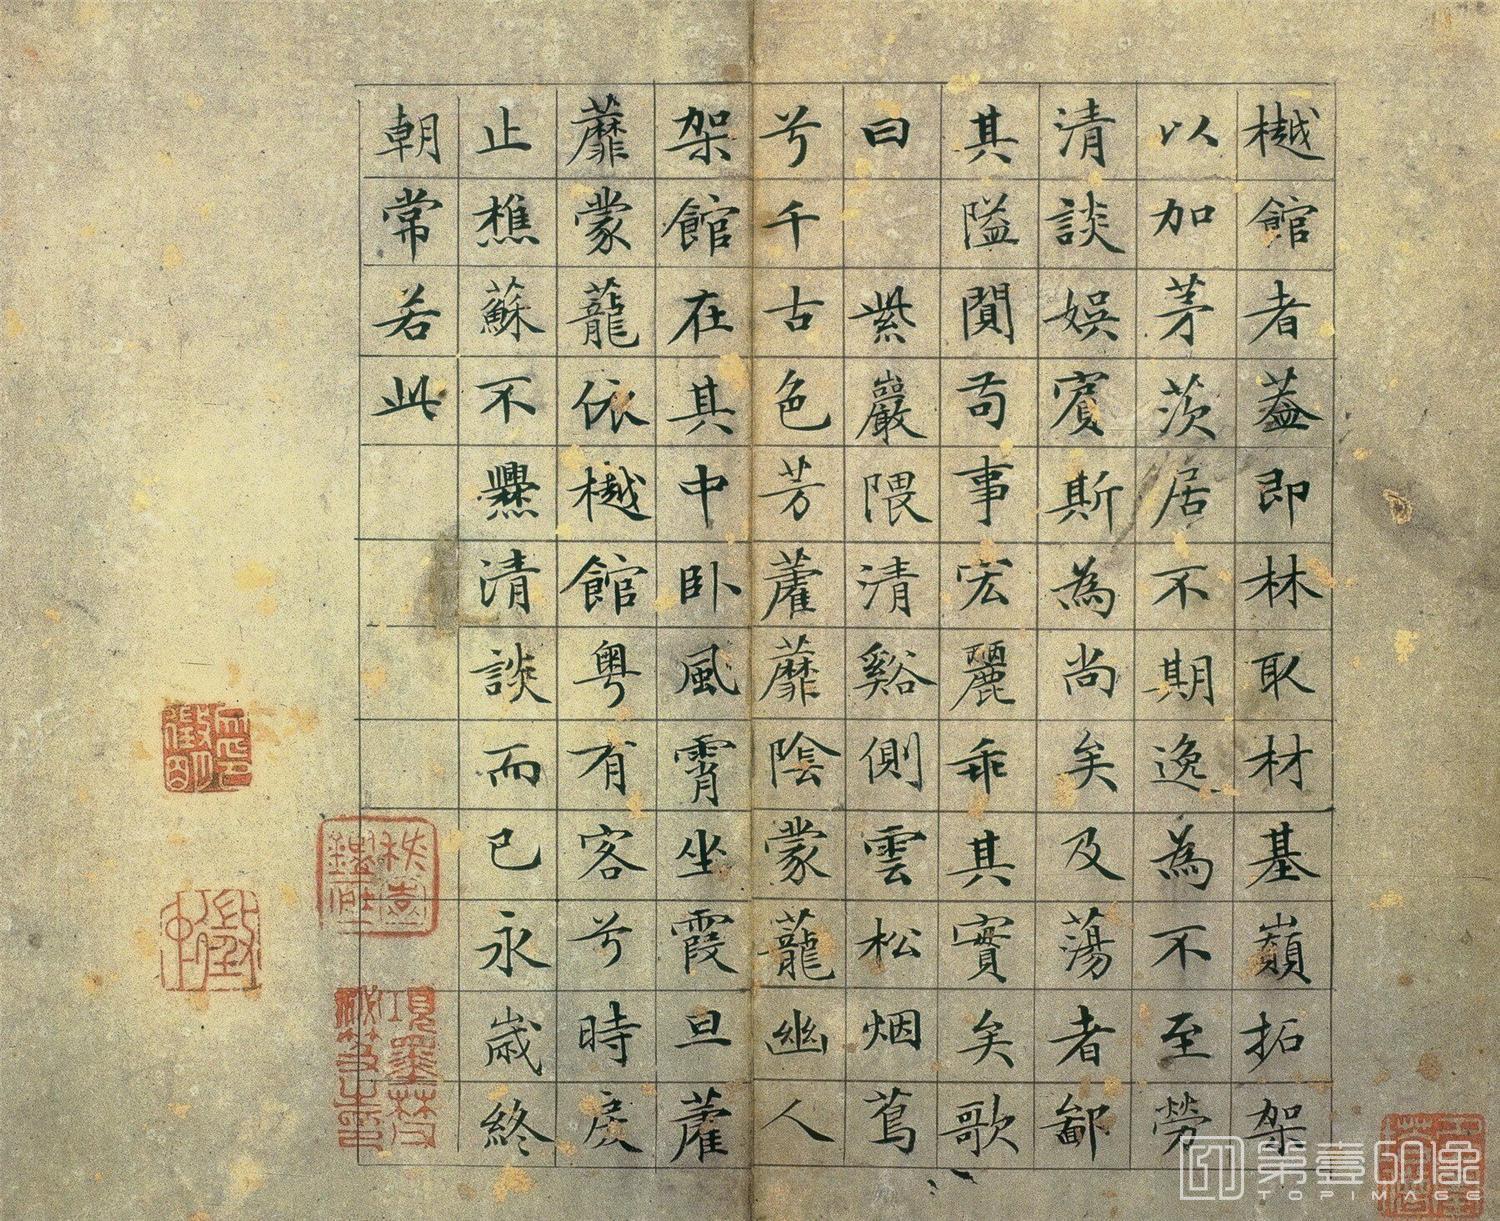 樾館者葢即林取材基巔拓架
以加茅茨居不期逸為不至勞
清談娱賔斯為尚矣及蕩者鄙
其隘閴苟事宏麗乖其實矣歌
曰 紫巖隈清谿側雲松烟蔦
兮千古色芳藿蘼陰蒙蘢幽人
架館在其中卧風霄坐霞旦藿
蘼蒙蘢依樾館粤有客兮時戾
止樵蘇不爨清談而已永歳終
朝常若此
項墨林父
秘笈之印
第壹印象
TOPIMAGE